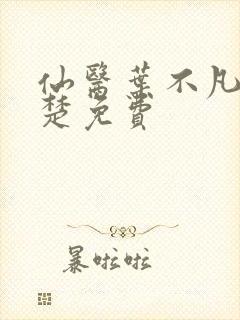 仙醫葉不凡
楚免費
暴啦啦